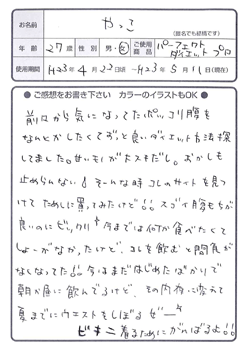 お名前
やっこ
(匿名でも結構です)
年齢 27歳 性別 男・女 ご使用商品 パーフェクトダイエットプロ
使用期間 H23年4月22日頃〜H23年5月11日(現在)
●ご感想をお書き下さい カラーのイラストもOK●
前々から気になってたポッコリ腹を
なんとかしたくてずっと良いダイエット方法探
してました。甘いモノが大スキだし。おかしも
止められない! そんな時コレのサイトを見つ
けてためしに買ってみたけど!! スゴイ腹もちが
良いのにビックリ 今までは何か食べたくて
しょーがなかったけど、コレを飲むと間食が
なくなってた!! 今はまだはじめたばかりで
朝か昼に飲んでるけど、その内夜に変えて
夏までにウエストをしぼるぜ
ビキニ着るためにがんばるよ!!